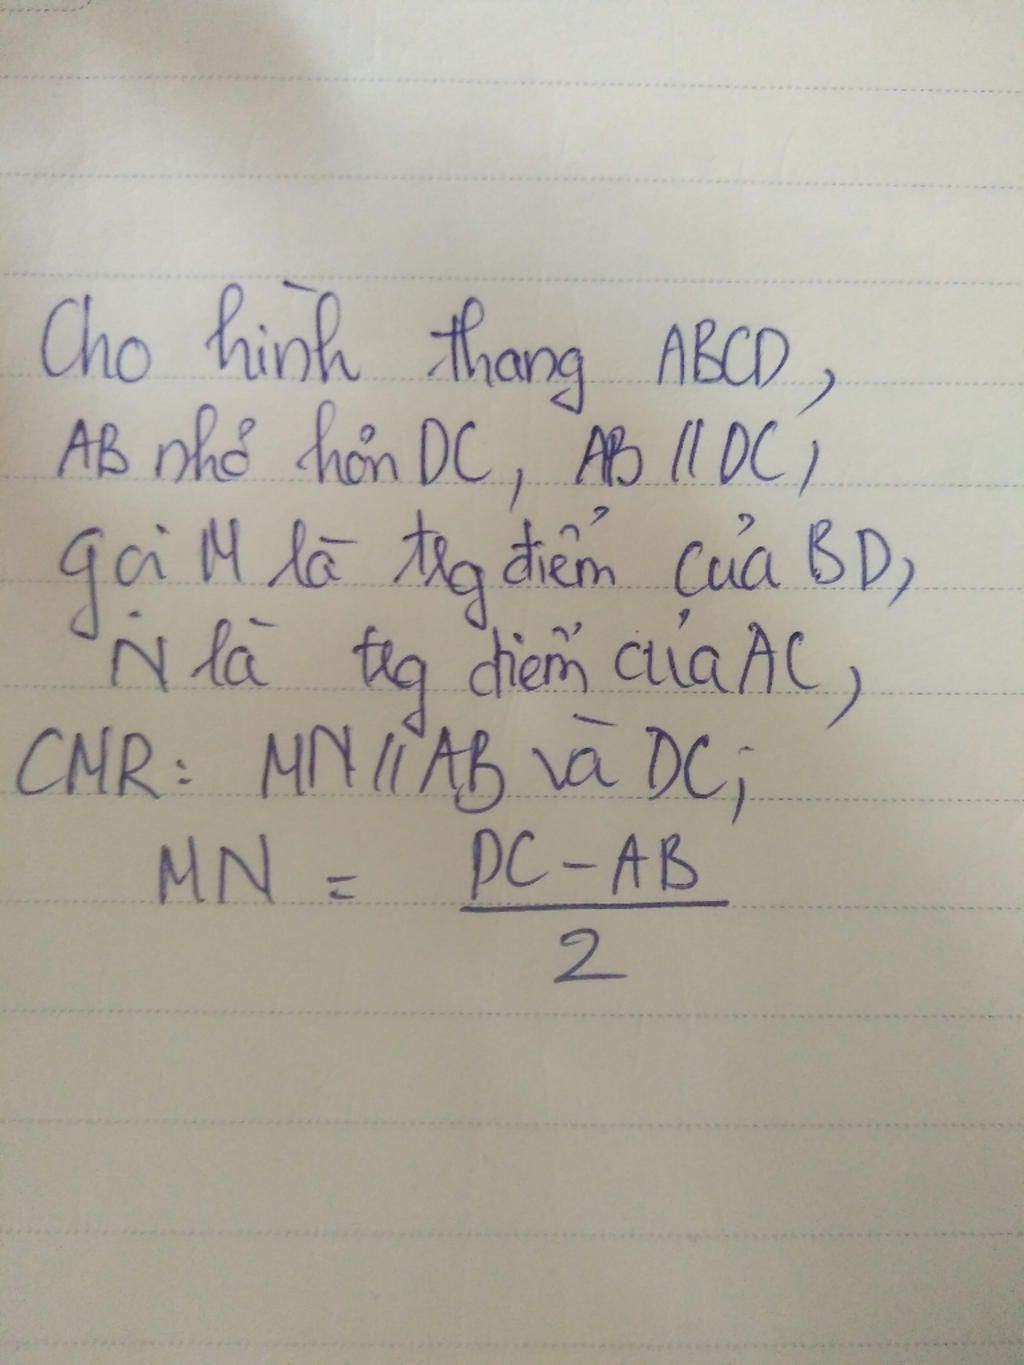 Cho hình thang ABCD,
AB nhỏ hơn DC, AB // DC,
gọi M là trg điểm của BD,
N là trg điểm của AC,
CMR: MN // AB và DC;
MN = DC - AB
2